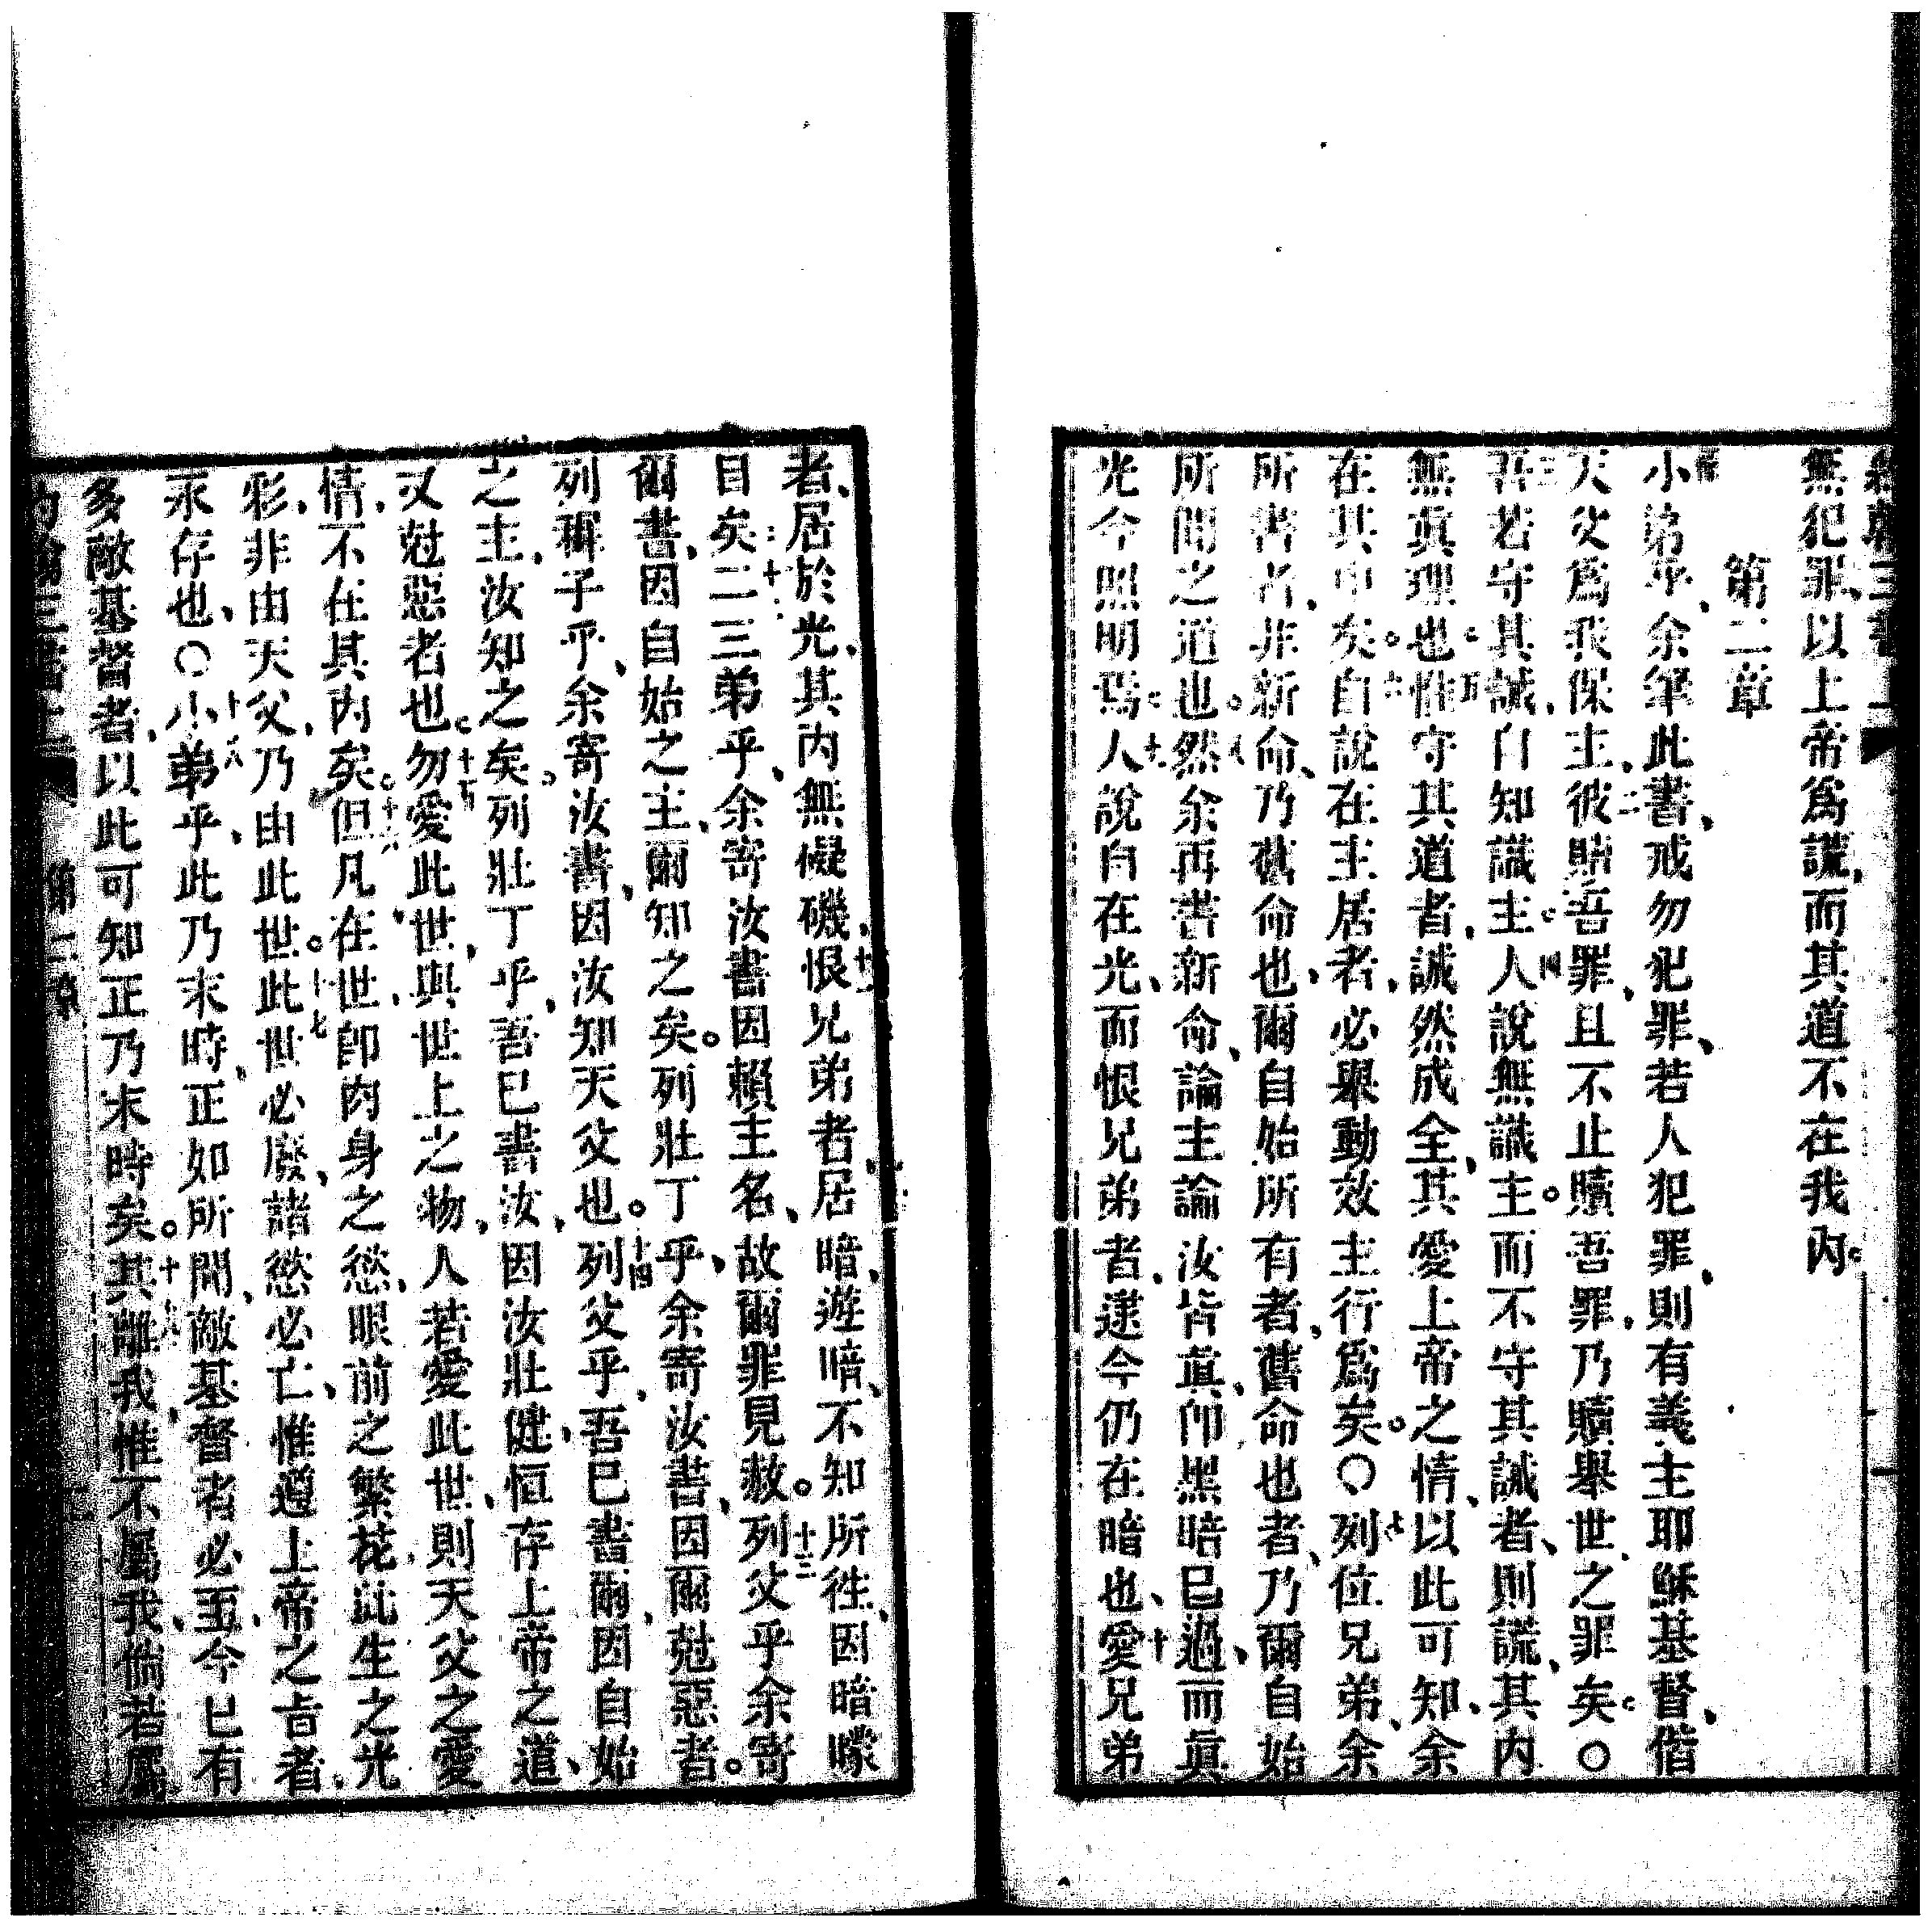 無犯罪、以上帝爲謊、而其道不在我內。
第二章
小弟乎、余筆此書、戒勿犯罪、若人犯罪、則有義主耶穌基督、偕
天父爲我保主、二彼贖吾罪、且不止贖吾罪、乃贖舉世之罪矣。〇
三吾若守其誡、自知識主。四人說無識主。而不守其誡者、則謊、其內
無眞理也。五惟守其道者、誠然成全、其愛上帝之情、以此可知、余
在其中矣。六自說在主居者、必舉動效主行爲矣。〇七列位兄弟、余
所書者、非新命、乃舊命也、爾自始所有者、舊命也者、乃爾自始
所聞之道也。八然余再書新命、論主論汝皆眞、卽黑暗已過、而眞
光今照明焉。九人說自在光、而恨兄弟者、遂今仍在暗也、十愛兄弟
者、居於光、其內無礙磯、十一恨兄弟者、居暗、遊暗、不知所往、因暗矇
目矣。十二二三弟乎、余寄汝書、因賴主名、故爾罪見赦。十三列父乎余寄
爾書、因自始之主、爾知之矣。列壯丁乎、余寄汝書、因爾尅惡者。
列稺子乎、余寄汝書、因汝知天父也。十四列父乎、吾已書爾、因自始
之主、汝知之矣。列壯丁乎、吾已書汝、因汝壯健、恒存上帝之道、
又尅惡者也。十五勿愛此世、與世上之物、人若愛此世、則天父之愛
情、不在其內矣。十六但凡在世、卽肉身之慾、眼前之繁花、此生之光
彩、非由天父、乃由此世。十七此世必廢、諸慾必亡、惟遵上帝之旨者、
永存也、〇十八小弟乎、此乃末時、正如所聞、敵基督者必至、今已有
多敵基督者、以此可知正乃末時矣。十九其離我、惟不屬我、倘若屬